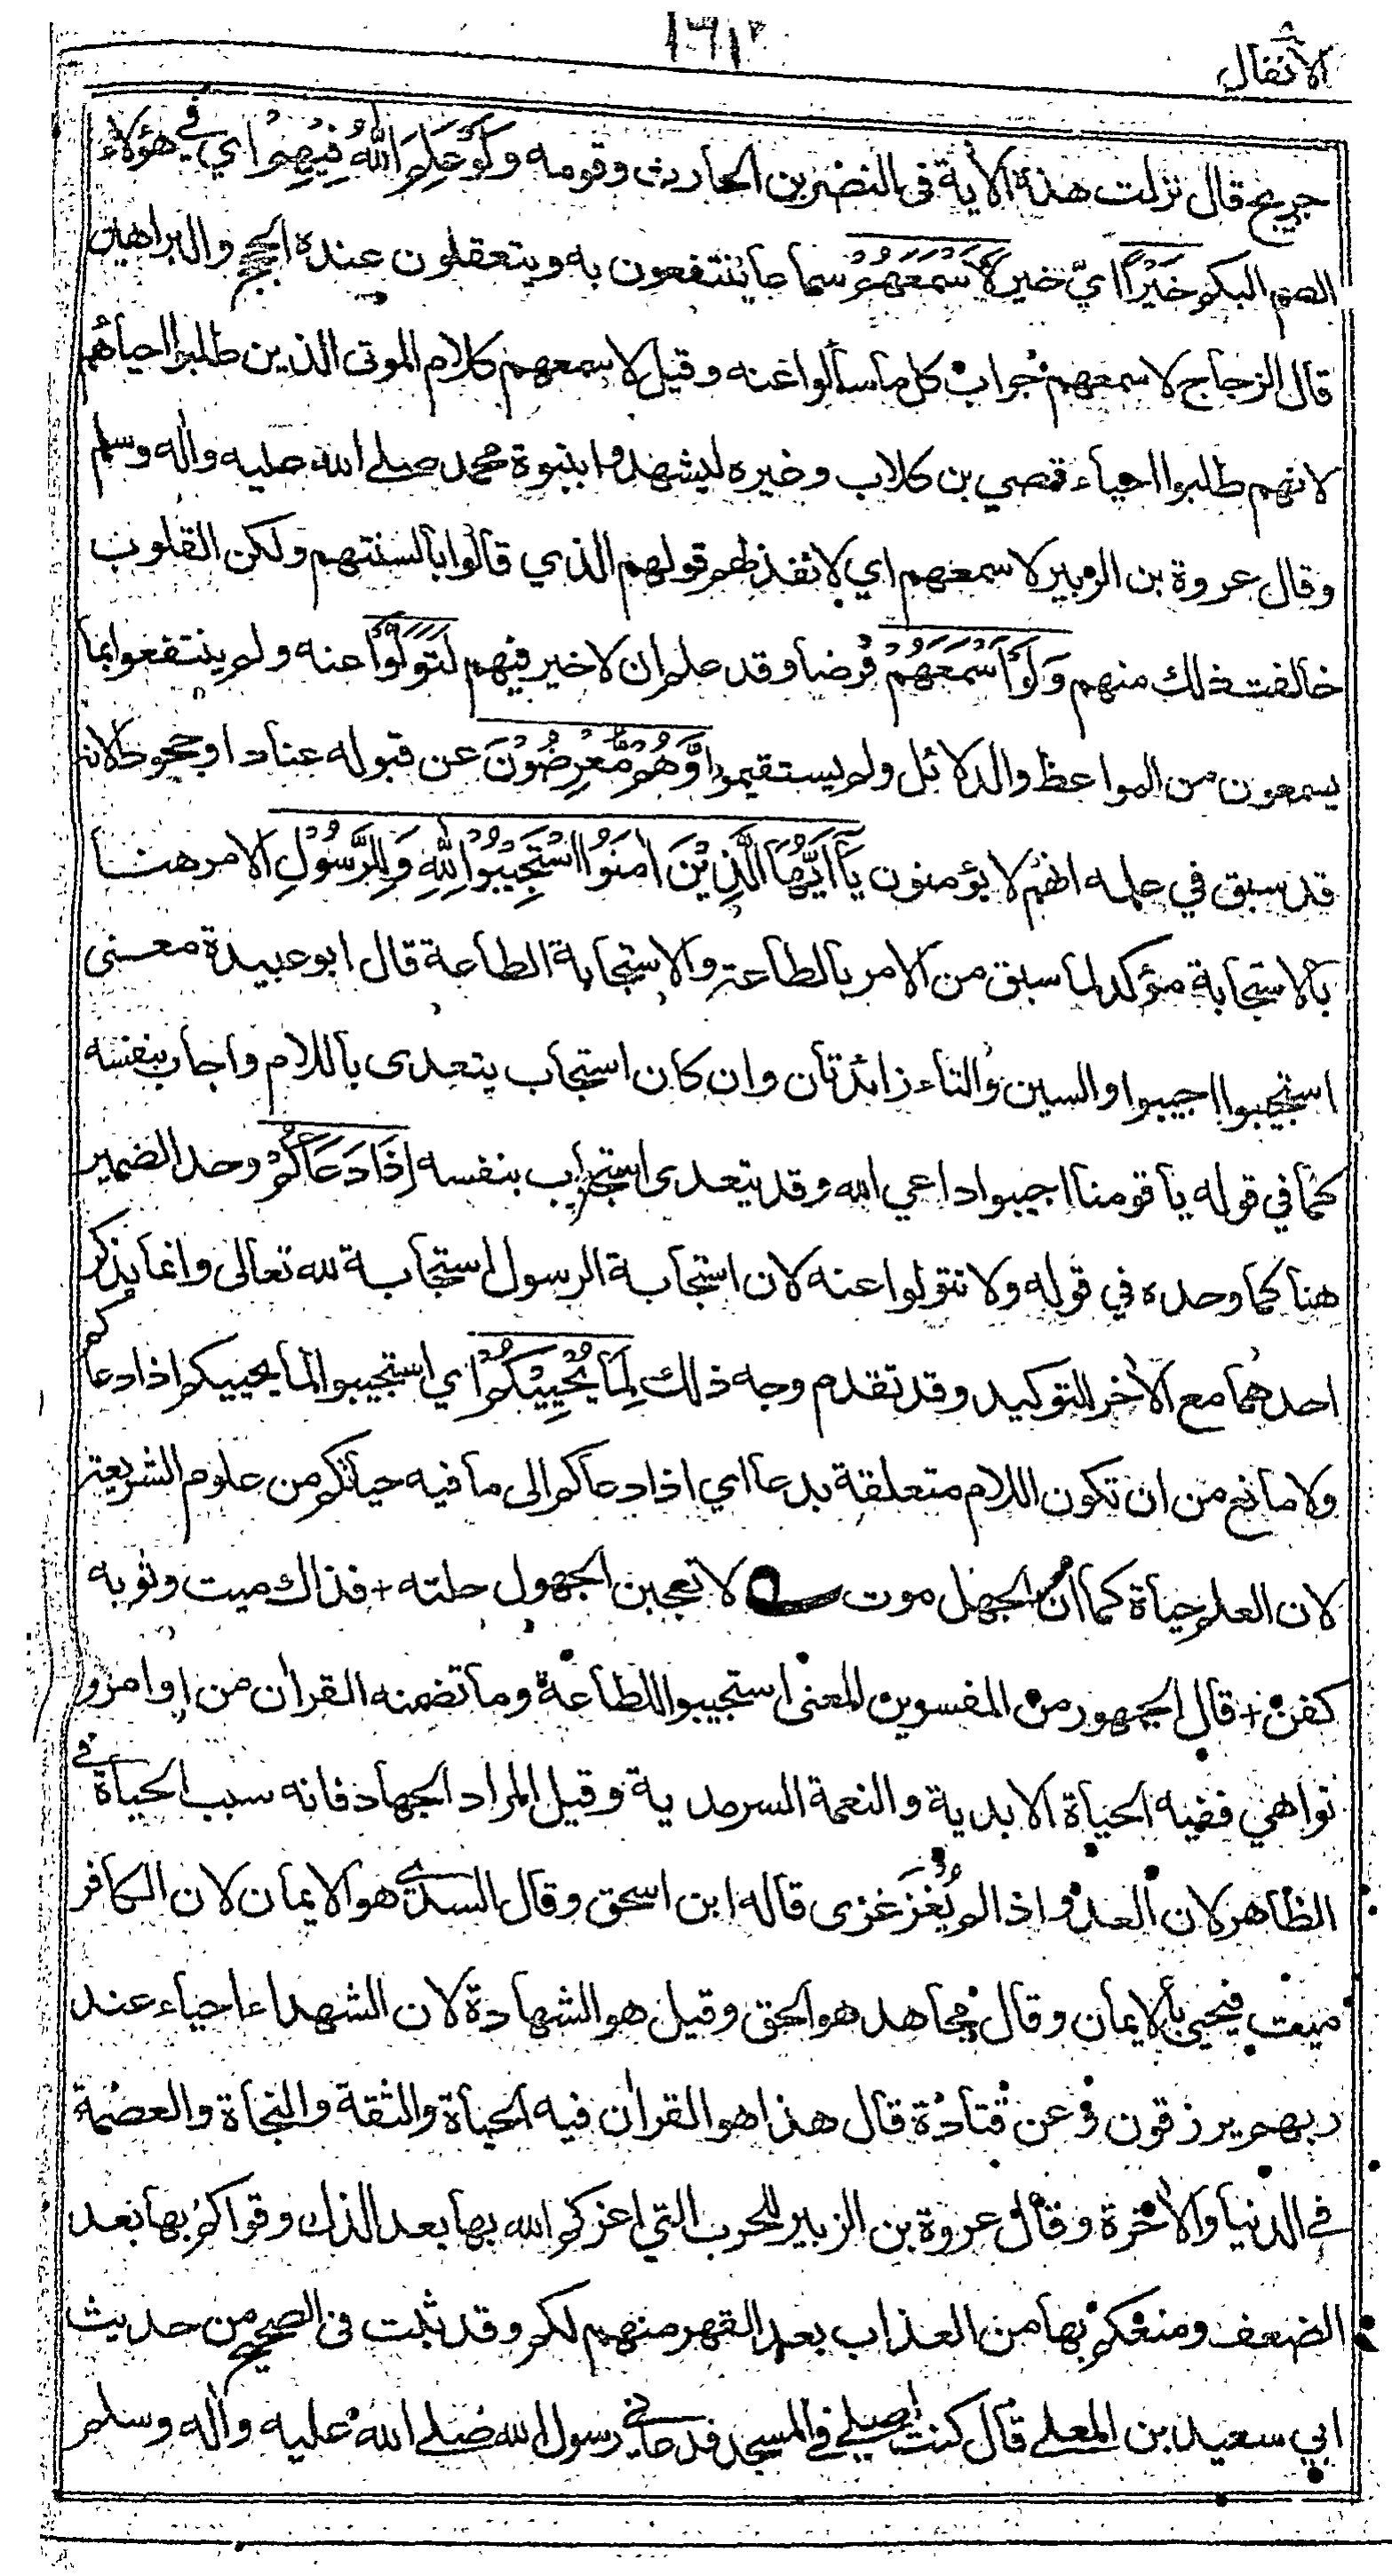 الأنفال ٨
١٦١٣
جريج قال نزلت هذه الأية فى النضر بن الحارث وقومه وَلَوْ عَلِمَ اللّٰهُ فِيْهِمْ اي في هؤلاء
الصم البكم خَيْرًا ايّ خير لَاَسْمَعَهُمْ سماعا ينتفعون به ويتعقلون عنده الحجج والبراهين
قال الزجاج لاسمعهم جواب كل ما سألوا عنه وقيل لاسمعهم كلام الموتى الذين طلبوا احيائهم
لانهم طلبوا احياء قصي بن كلاب وغيره ليشهدوا بنبوة محمد صلى الله عليه واٰله وسلم
وقال عروة بن الزبير لاسمعهم اي لانفذ لهم قولهم الذي قالوا بألسنتهم ولكن القلوب
خالفت ذلك منهم وَلَوْ اَسْمَعَهُمْ فرضا وقد علم ان لا خير فيهم لَتَوَلَّوْا عنه ولم ينتفعوا بما
يسمعون من المواعظ والدلائل ولم يستقيموا وَّهُمْ مُّعْرِضُوْنَ عن قبوله عنادا وجحودا لانه
قد سبق في علمه انهم لا يؤمنون يٰٓاَيُّهَا الَّذِيْنَ اٰمَنُوا اسْتَجِيْبُوْا لِلّٰهِ وَلِلرَّسُوْلِ الامر هنا
بالاستجابة مؤكد لما سبق من الامر بالطاعة والاستجابة الطاعة قال ابو عبيدة معنى
استجيبوا اجيبوا والسين والتاء زائدتان وان كان استجاب يتعدى باللام واجاب بنفسه
كما في قوله يا قومنا اجيبوا داعي الله وقد يتعدى استجاب بنفسه اِذَا دَعَاكُمْ وحد الضمير
هنا كما وحده في قوله ولا تتولوا عنه لان استجابة الرسول استجابة لله تعالى وانما يذكر
احدهما مع الاٰخر للتوكيد وقد تقدم وجه ذلك لِمَا يُحْيِيْكُمْ اي استجيبوا لما يحييكم اذا دعاكم
ولا مانع من ان تكون اللام متعلقة بدعا اي اذا دعاكم الى ما فيه حياتكم من علوم الشريعة
لان العلم حياة كما ان الجهل موت لا تعجبن الجهول حلته + فذاك ميت وثوبه
كفن + قال الجمهور من المفسرين المعنى استجيبوا للطاعة وما تضمنه القراٰن من اوامر و
نواهي ففيه الحياة الابدية والنعمة السرمدية وقيل المراد الجهاد فانه سبب الحياة في
الظاهر لان العدو اذا لم يُغْزَ غزى قاله ابن اسحق وقال السدي هو الايمان لان الكافر
ميت فيحيى بالايمان وقال مجاهد هو الحق وقيل هو الشهادة لان الشهداء احياء عند
ربهم يرزقون وعن قتادة قال هذا هو القراٰن فيه الحياة والثقة والنجاة والعصمة
في الدنيا والاٰخرة وقال عروة بن الزبير للحرب التي اعزكم الله بها بعد الذل وقواكم بها بعد
الضعف ومنعكم بها من العذاب بعد القهر منهم لكم وقد ثبت فى الصحيح من حديث
ابي سعيد بن المعلى قال كنت اصلي في المسجد فدعاني رسول الله صلى الله عليه واٰله وسلم